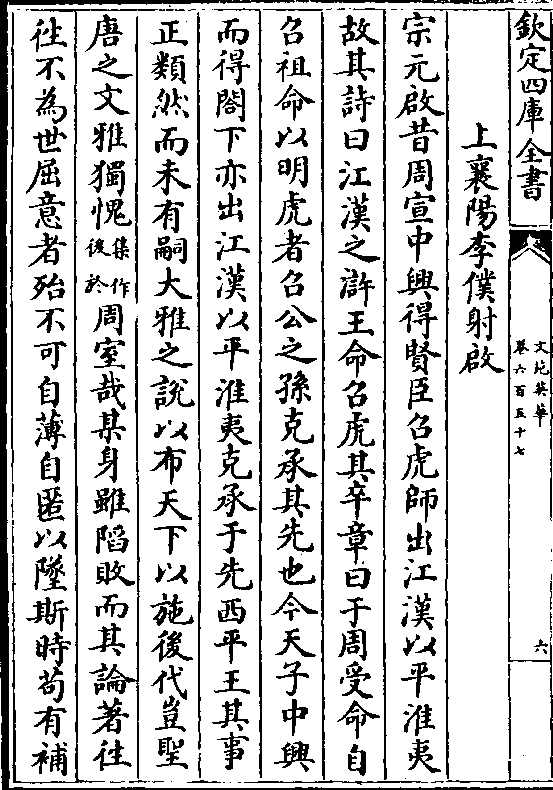 欽定四庫全書
文苑英華
卷六百五十七
六
上襄陽李僕射啟
宗元啟昔周宣中興得賢臣召虎師出江漢以平淮夷
故其詩曰江漢之滸王命召虎其卒章曰于周受命自
召祖命以明虎者召公之孫克承其先也今天子中興
而得閤下亦出江漢以平淮夷克承于先西平王其事
正類然而未有嗣大雅之說以布天下以施後代豈聖
唐之文雅獨愧集作後於周室哉某身雖陷敗而其論著往
往不為世屈意者殆不可自薄自匿以墜斯時苟有補